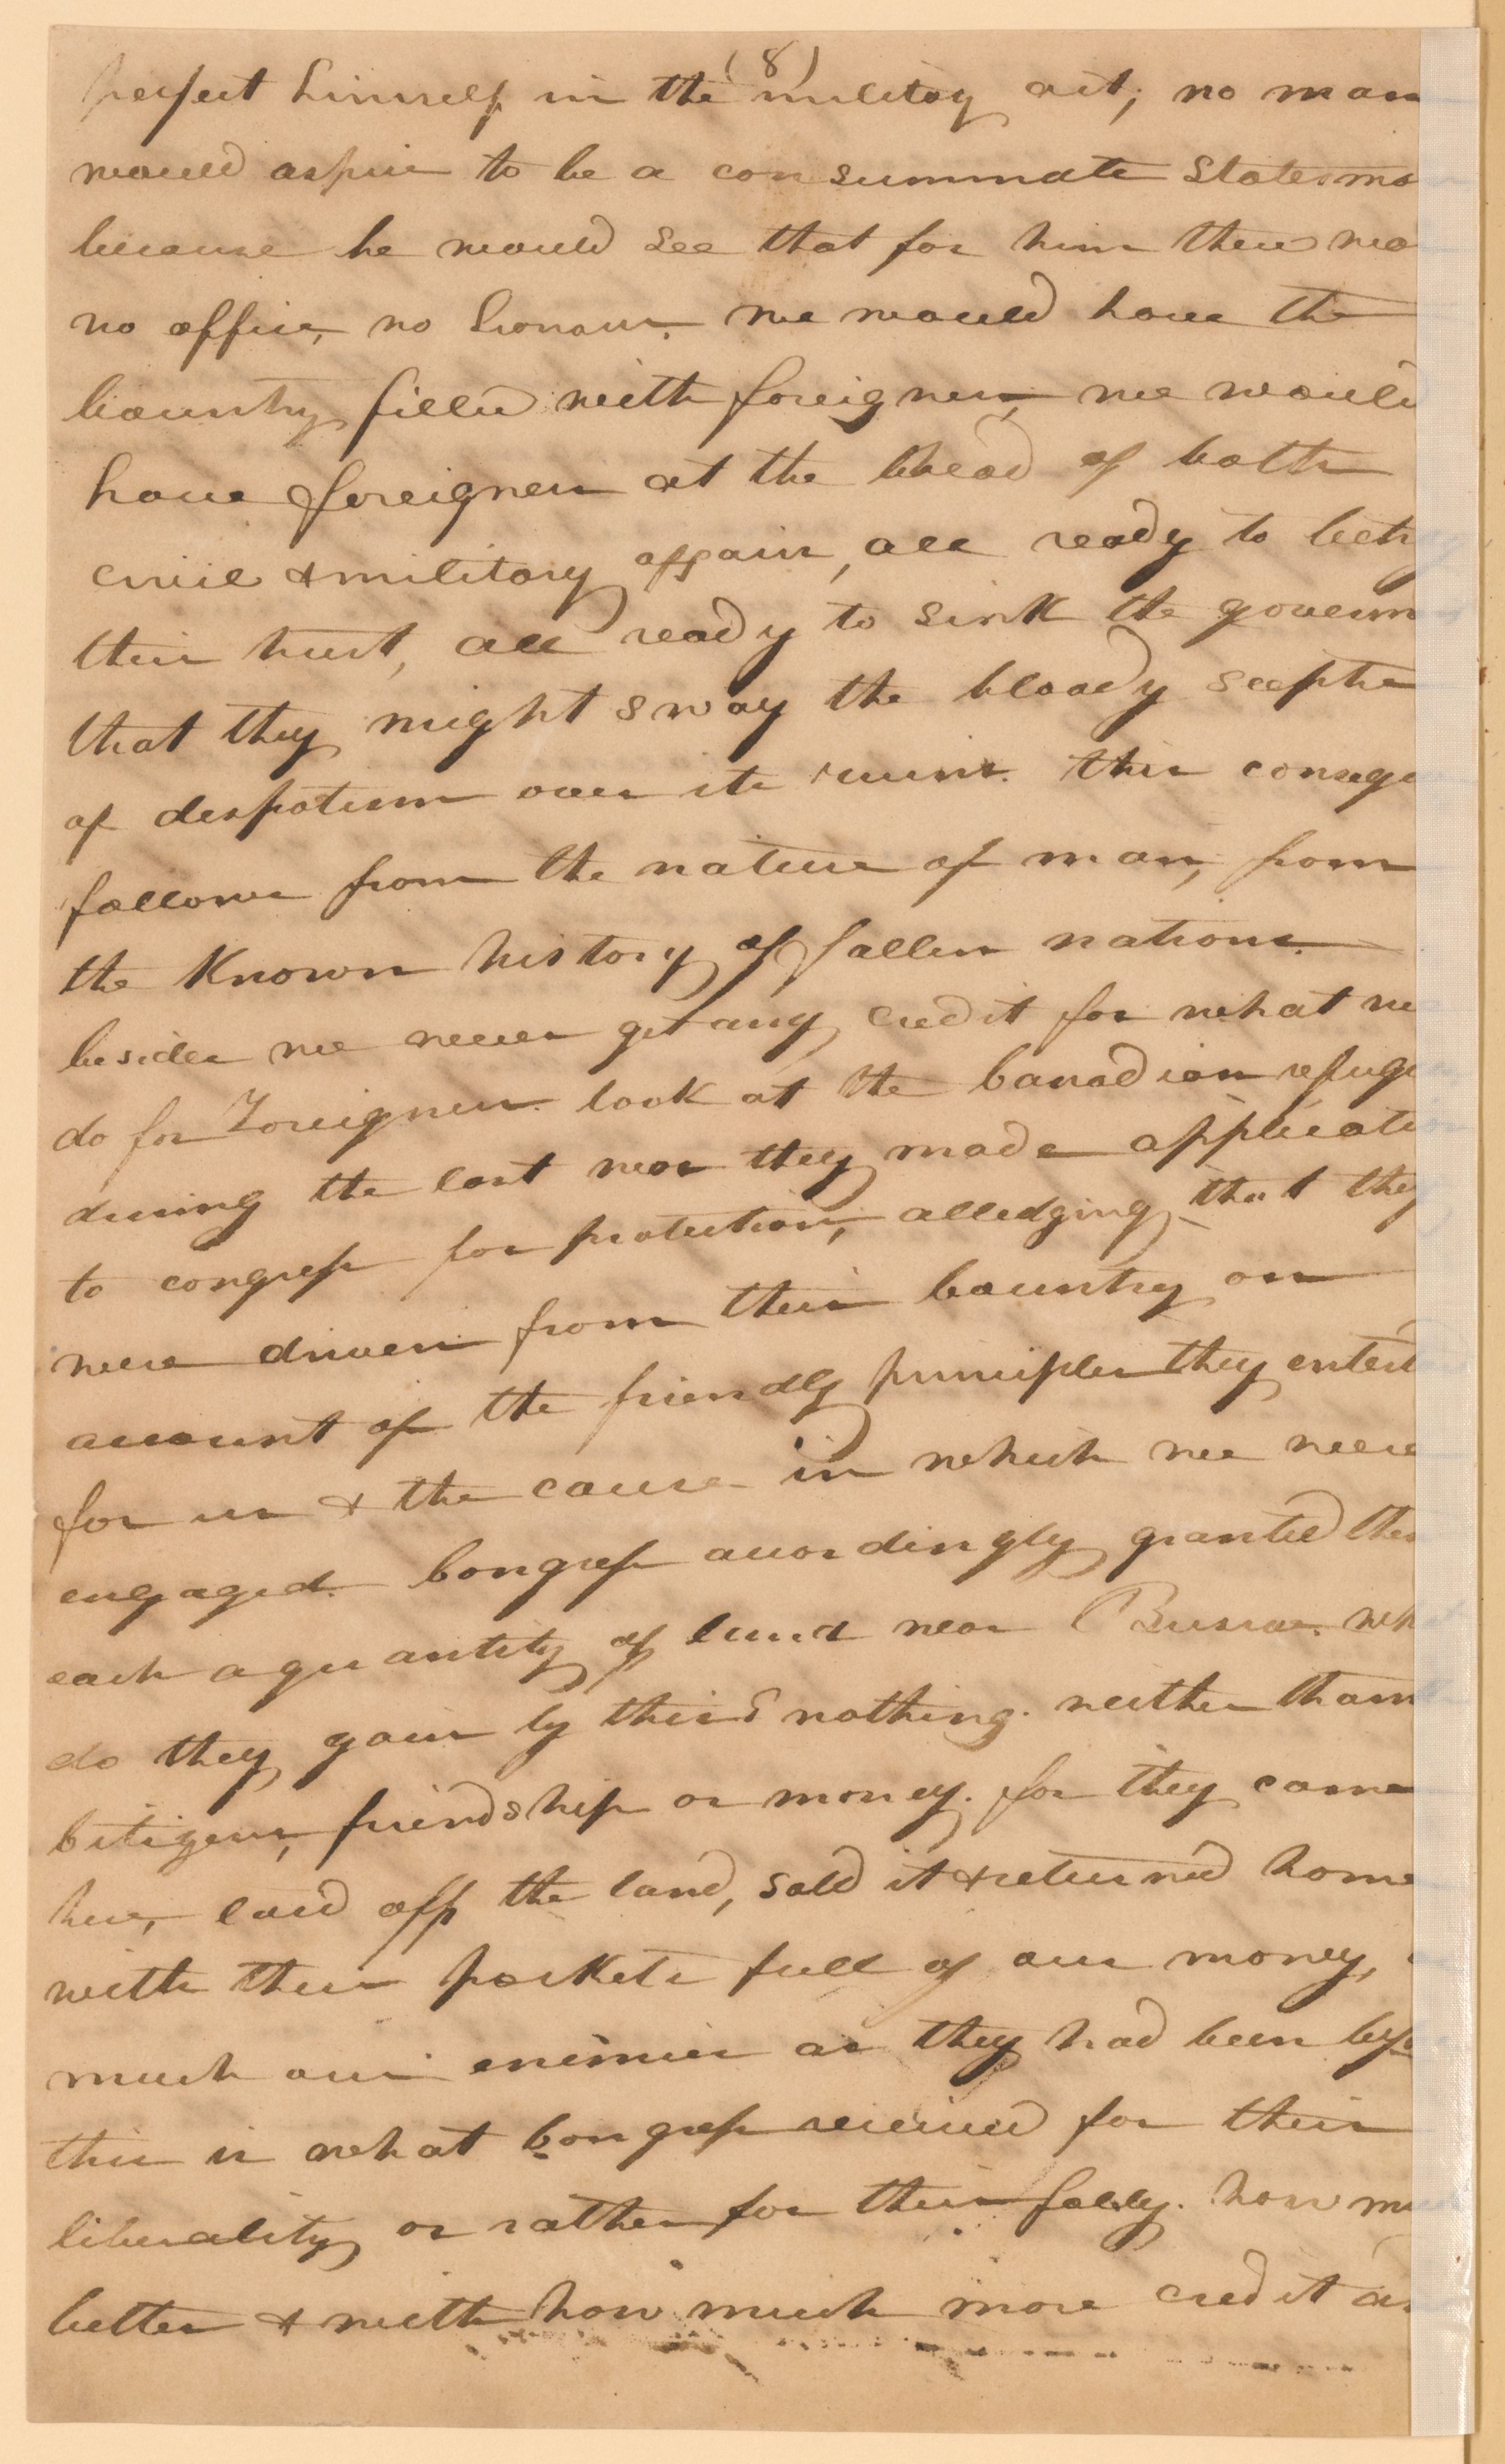 (8)
perfect himself in the military art; no man
would aspire to be a consummate Statesma
because he would see that for him there wa
no office, no honour. we would have the
Country filled with foreigners, we would
have foreigners at the head of both
civil & military affairs, all ready to betray
their trust, all ready to sink the governm
that they might sway the bloody scepter
of despotism over its ruins. this conseque
follows from the nature of man, from
the Known history of fallen nations.
besides we never get any credit for what we
do for Foreigners. look at the Canadian refuge
during the last war they made applicati
to congress for protection, alledging that they
were driven from their Country on
account of the friendly principles they entert
for us & the cause in which we were
engaged. Congress accordingly granted them
each a quantity of land near wh
do they gain by this? nothing. neither than
Citizens, friendship or money. for they came
here, laid off the land, sold it & returned home
with their pockets full of our money,
much our enimies as they had been befo
this is what Congress received for their
liberality or rather for their folly. how mu
better & with how much more credit